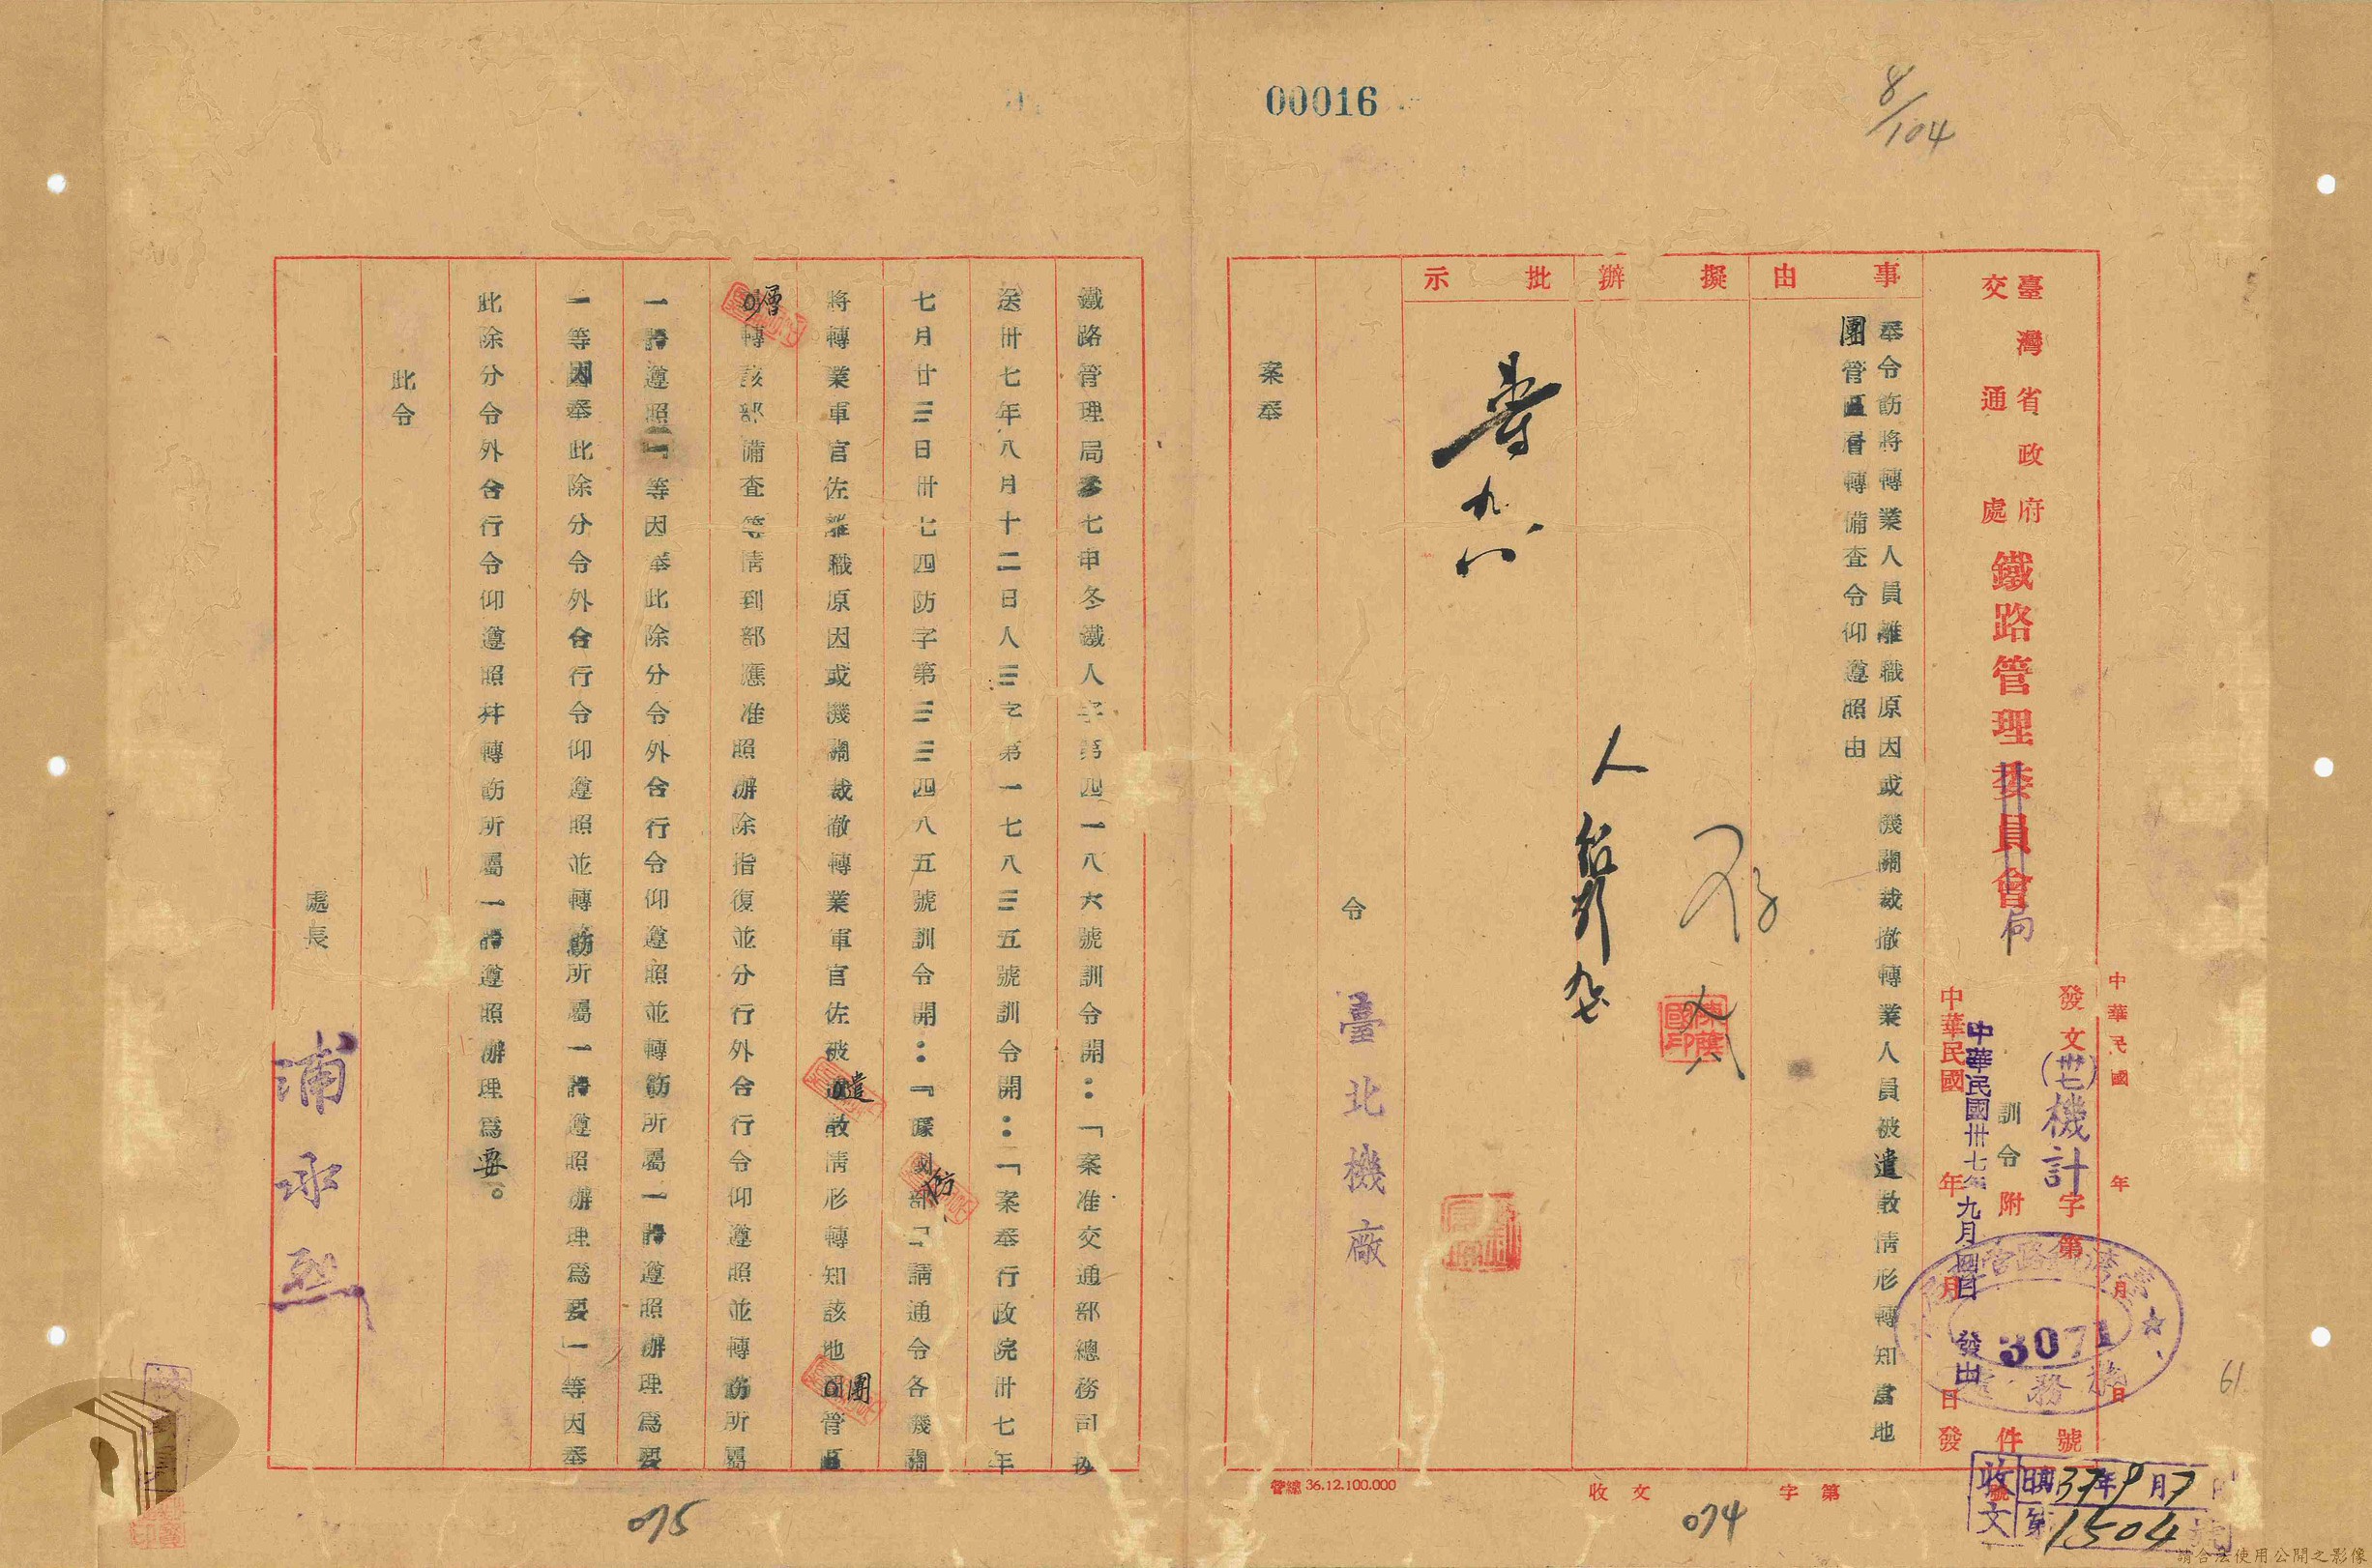 00016
8/104
臺灣省政府
交通處
鐵路管理委員會
局
發文(卅七)機計字第號
3071
訓令附件
中華民國年月日發
中華民國卅七年九月四日發出
中華民國年月日
事由
擬辦
批示
奉令飭將轉業人員離職原因或機關裁撤轉業人員被遣散情形轉知當地
團管區層轉備查令仰遵照由
存
人
九七
九八
令
臺北機廠
案奉
管線36.12.100.000
收文字第號
收文
37年9月7日
第1504號
074
61
鐵路管理局叁七申冬鐵人字第四一八六號訓令開:「案准交通部總務司抄
送卅七年八月十二日人三字第一七八三五號訓令開:「案奉行政院卅七年
七月廿三日卅七四防字第三三四八五號訓令開:『據國防部『請通令各機關
將轉業軍官佐離職原因或機關裁撤轉業軍官佐被遣散情形轉知該地團管區
層轉該部備查等情到部應准照辦除指復並分行外合行令仰遵照並轉飭所屬
一體遵照』等因奉此除分令外合行令仰遵照並轉飭所屬一體遵照辦理爲要
一等因奉此除分令外合行令仰遵照並轉飭所屬一體遵照辦理爲要」等因奉
此除分令外合行令仰遵照幷轉飭所屬一體遵照辦理爲要。
此令
處長
浦永烈
075
請合法使用公開之影像